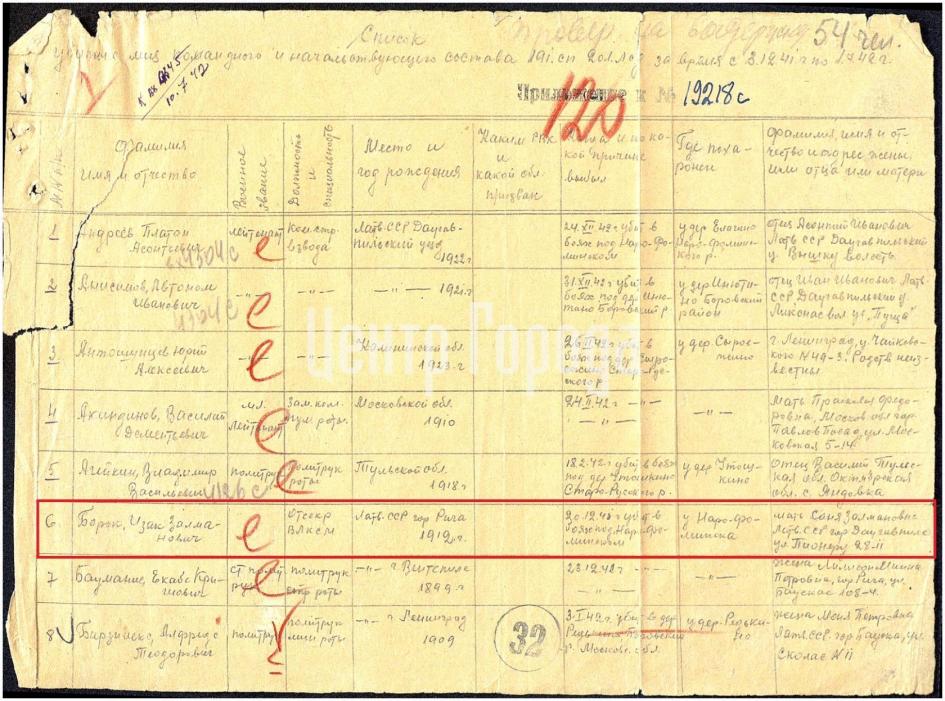 Список
54 чел.
командного и начальствующего состава 191 сп 201 Л.с.д. за время с 3.12.41 г по 1.7.42 г.
10.7.42
120
Приложение к № 19218с
Фамилия
имя и отчество
Военное звание
Должность и специальность
Место и
год рождения
Каким РВК
и
какой обл.
призван
и по ка-
кой причине
выбыл
Где похо-
ронен
Фамилия, имя и от-
чество и адрес жены,
или отца или матери
1
Андреев Платон
Леонтьевич
лейтенант
взвода
Латв. ССР Даугав-
пильский уезд
1922 г.
24.XII.42 г убит в
боях под Наро-Фо-
минском
у дер Елагино
Наро-Фомин-
ского р.
отец Леонтий Иванович
Латв ССР Даугавпильский
у. Вышку волость.
4304/с
2
Анисимов, Автоном
Иванович
—"—
—"—
—"— 1921 г
31.XII.42 г убит в
Боровский р.
Боровский
район
отец Иван Иванович Латв.
ССР, Даугавпильский у.
Ликснас вол ул „Пуща"
4304/с
3
Юрий
Алексеевич
—"—
—"—
Калининской обл.
1923 г.
26.II.42 г убит в
бою под дер
Стар-Рус-
ского р.
у дер
г. Ленинград, у. Чайков-
ского № 49-3. Родств неиз-
вестны
4
Акиндинов, Василий
Дементьевич
мл.
лейтенант
Зам. ком.
пул роты.
Московской обл.
1910
24.II.42 г —"—
—"—
—"—
Мать Прасковья Федо-
ровна, Москов обл гор.
Павлов Посад, ул. Мос-
ковская 5-14.
5
Агейкин, Владимир
Васильевич
политрук
политрук
роты
Тульской обл.
1918 г
18.2.42 г убит в боях
под дер Утошкино
Старо-Русского р.
у дер Утош-
кино
Отец Василий Туль-
ская обл. Октябрьская
обл. с. Яндовка
4126 с
6.
Борок, Изак Залма-
нович
Отсекр
ВЛКСМ
Латв. ССР гор Рига
1919 г.
20.12.41 г убит в
боях под Наро-Фо-
минском
у Наро-Фо-
минска
мать Соня Залмановна
Латв. ССР гор Даугавпилс
ул Пионеру 28-11
7
Бауманис, Екабс Кри-
шович
ст полит
рук
политрук
роты
—"— г. Витебске
1899 г.
23.12.42 г —"—
—"—
жена
Петровна, гор Рига, ул.
108-4.
8
Бирзниекс, Алфредс
Теодорович
политрук
политрук
роты
—"— г Ленинград
1909
3.I.42 г. убит в дер
Боровский
р. Московс. обл.
у дер. Редьки-
но
жена Моня Петровна
Латв. ССР гор Бауска, ул.
Сколас № 11
32
Центр Города